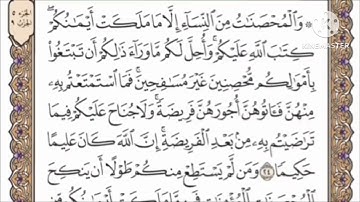 وَالْمُحْصَنَاتُ مِنَ النِّسَاءِ إِلَّا مَا مَلَكَتْ أَيْمَانُكُمْ
كِتَابَ اللَّهِ عَلَيْكُمْ وَأُحِلَّ لَكُم مَّا وَرَاءَ ذَٰلِكُمْ أَن تَبْتَغُوا
بِأَمْوَالِكُم مُّحْصِنِينَ غَيْرَ مُسَافِحِينَ فَمَا اسْتَمْتَعْتُم بِهِ
مِنْهُنَّ فَآتُوهُنَّ أُجُورَهُنَّ فَرِيضَةً وَلَا جُنَاحَ عَلَيْكُمْ فِيمَا
تَرَاضَيْتُم بِهِ مِن بَعْدِ الْفَرِيضَةِ إِنَّ اللَّهَ كَانَ عَلِيمًا
حَكِيمًا ٢٤ وَمَن لَّمْ يَسْتَطِعْ مِنكُمْ طَوْلًا أَن يَنكِحَ
الْجُزْءُ ٥
KINEMASTER